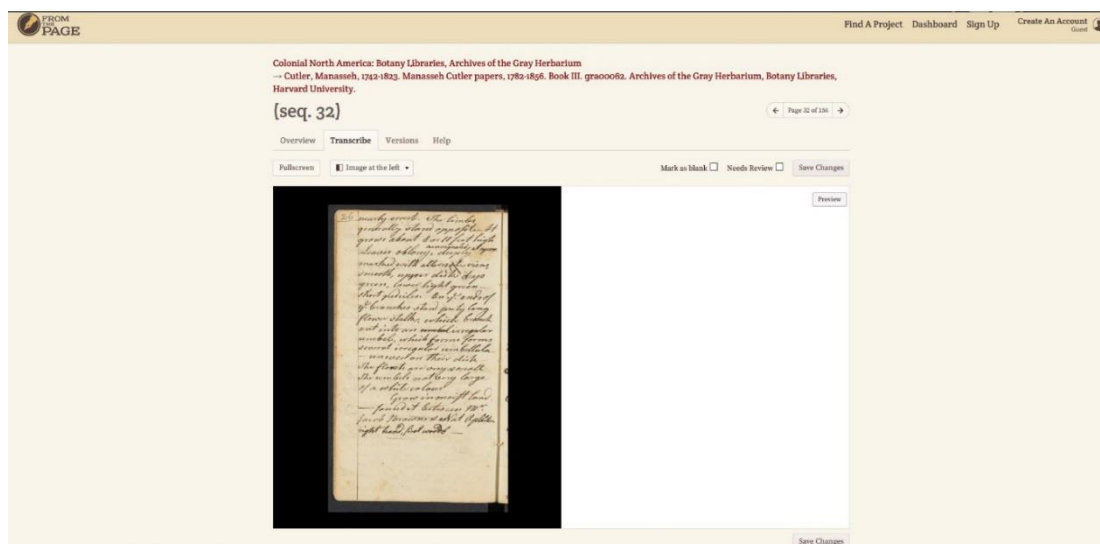 FROM
THE
PAGE
Find A Project Dashboard Sign Up Create An Account
Guest
Colonial North America: Botany Libraries, Archives of the Gray Herbarium
→ Cutler, Manasseh, 1742-1823. Manasseh Cutler papers, 1782-1856. Book III. gra00062. Archives of the Gray Herbarium, Botany Libraries,
Harvard University.
(seq. 32)
← Page 32 of 186 →
Overview Transcribe Versions Help
Fullscreen Image at the left
Mark as blank Needs Review Save Changes
Preview
26 nearly erect. The limbs
generally stand opposite. It
grows about 8 or 10 feet high
Leaves oblong, deeply
marked with
smooth, upper disks deep
green, lower light green
short pedicles. On yᵉ ends of
yᵉ branches stand pretty long
flower stalks, which branch
out into an irregular
umbel, which forms
several irregular umbellula
uneven on their disk
The florets are very small
The umbels not very large
of a white colour
Grows in moist land
found it between Mʳ.
Jacob Browns
right hand, first woods
Save Changes